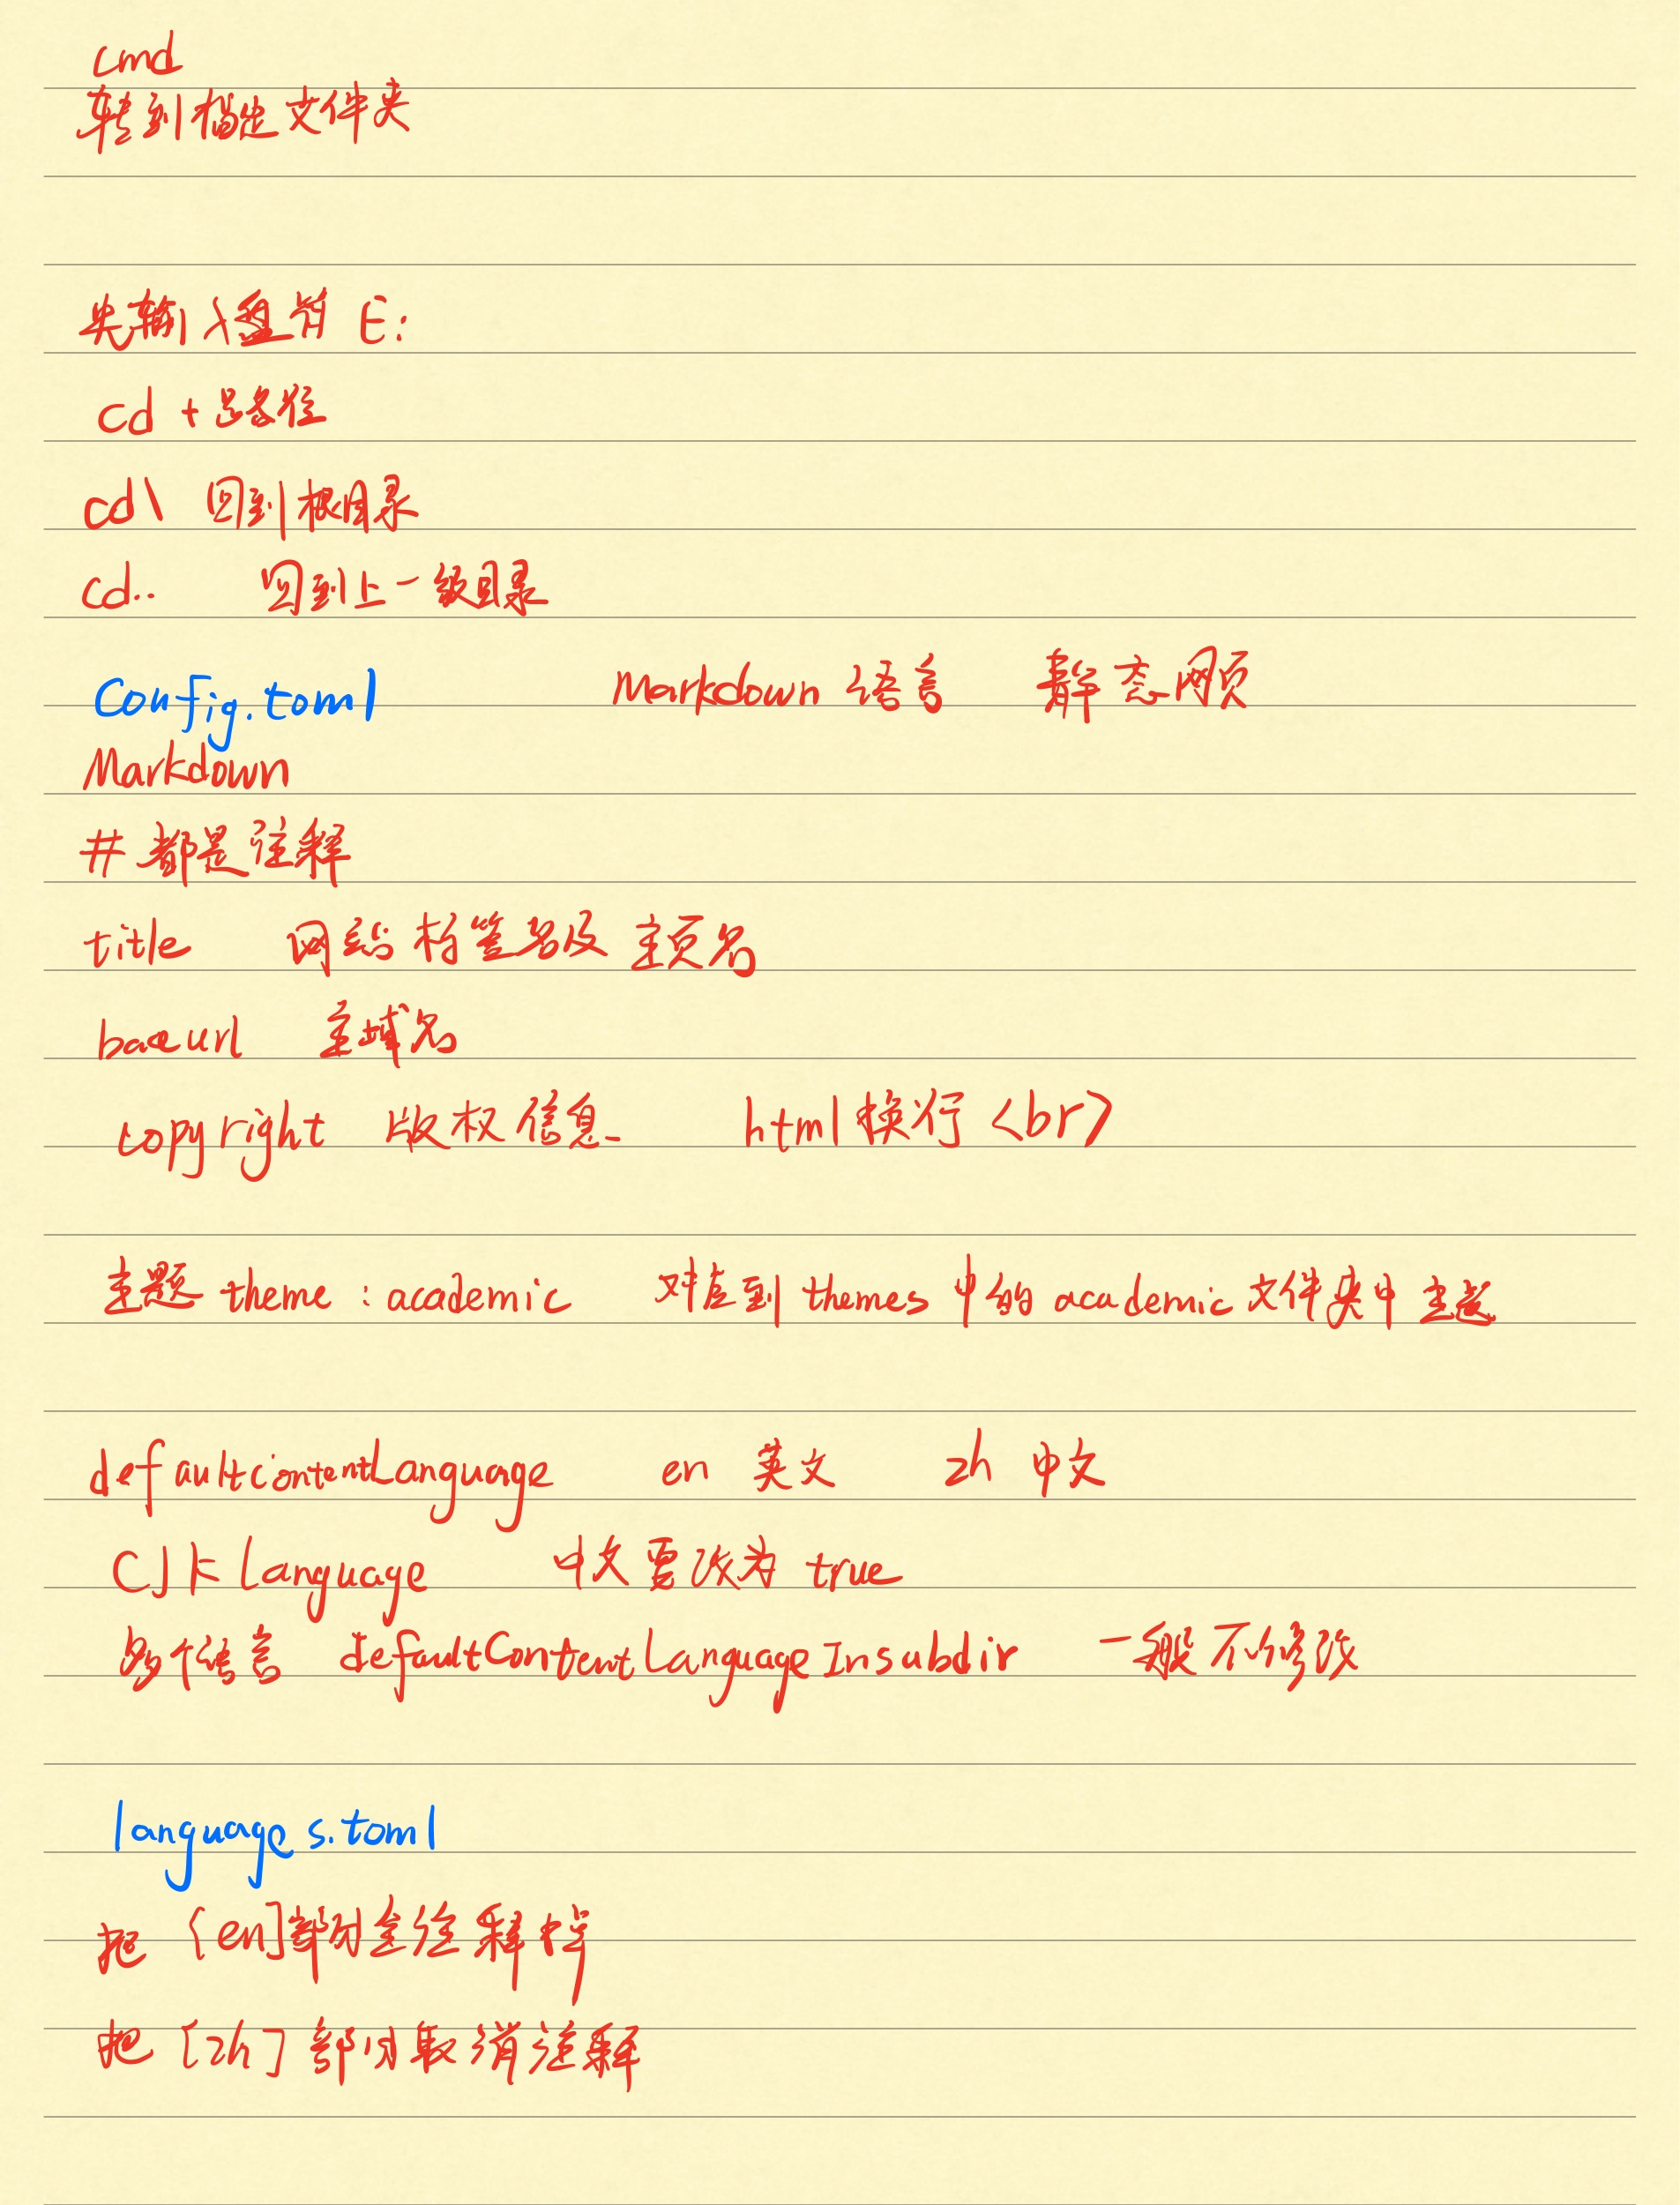 cmd
转到指定文件夹
先输入盘符 E:
cd + 路径
cd\ 回到根目录
cd.. 回到上一级目录
Config.toml Markdown 语言 静态网页
Markdown
# 都是注释
title 网站标签名及主页名
baseurl 主域名
copyright 版权信息 html换行 <br>
主题 theme : academic 对应到 themes 中的 academic 文件夹中主题
defaultcontentLanguage en 英文 zh 中文
CJKLanguage 中文要改为 true
多个语言 defaultContentLanguageInsubdir 一般不修改
languages.toml
把 [en]部分全注释掉
把 [zh] 部分取消注释